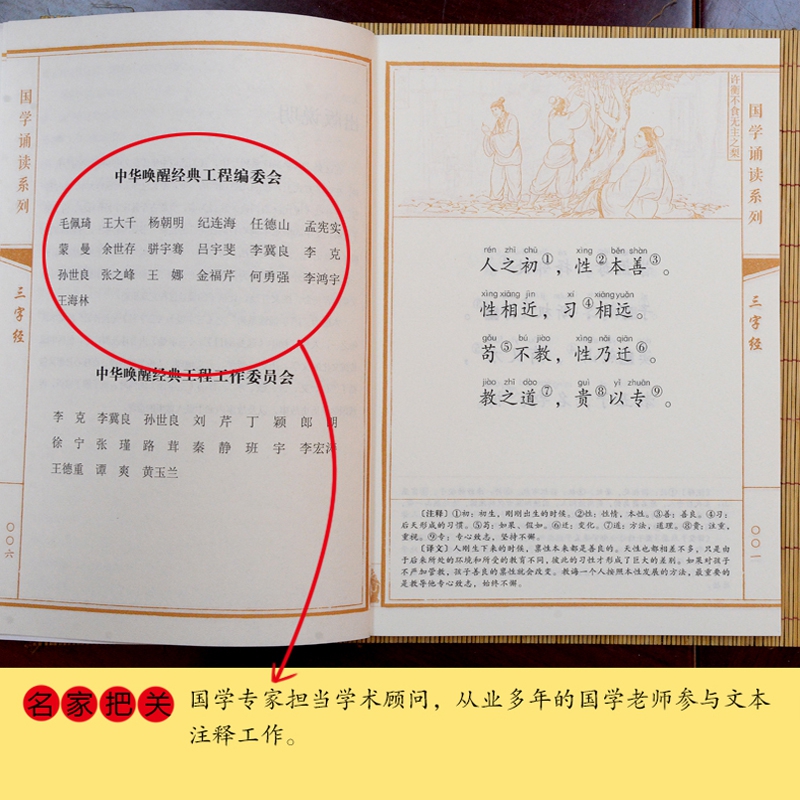 国学诵读系列
三字经
〇〇六
中华唤醒经典工程编委会
毛佩琦 王大千 杨朝明 纪连海 任德山 孟宪实
蒙 曼 余世存 骈宇骞 吕宇斐 李冀良 李 克
孙世良 张之峰 王 娜 金福芹 何勇强 李鸿宇
王海林
中华唤醒经典工程工作委员会
李 克 李冀良 孙世良 刘 芹 丁 颖 郎 朗
徐 宁 张 瑾 路 茸 秦 静 班 宇 李宏涛
王德重 谭 爽 黄玉兰
许衡不食无主之梨
rén zhī chū xìng běn shàn
人之初①，性②本善③。
xìng xiāng jìn xí xiāng yuǎn
性相近，习④相远。
gǒu bú jiào xìng nǎi qiān
苟⑤不教，性乃迁⑥。
jiào zhī dào guì yǐ zhuān
教之道⑦，贵⑧以专⑨。
[注释]①初：初生，刚刚出生的时候。②性：性情，本性。③善：善良。④习：
后天形成的习惯。⑤苟：如果，假如。⑥迁：变化。⑦道：方法，道理。⑧贵：注重，
重视。⑨专：专心致志，坚持不懈。
[译文]人刚生下来的时候，禀性本来都是善良的。天性也都相差不多，只是由
于后来所处的环境和所受的教育不同，彼此的习性才形成了巨大的差别。如果对孩子
不严加管教，孩子善良的禀性就会改变。教诲一个人按照本性发展的方法，最重要的
是教导他专心致志，始终不懈。
国学诵读系列
三字经
〇〇一
名家把关
国学专家担当学术顾问，从业多年的国学老师参与文本
注释工作。